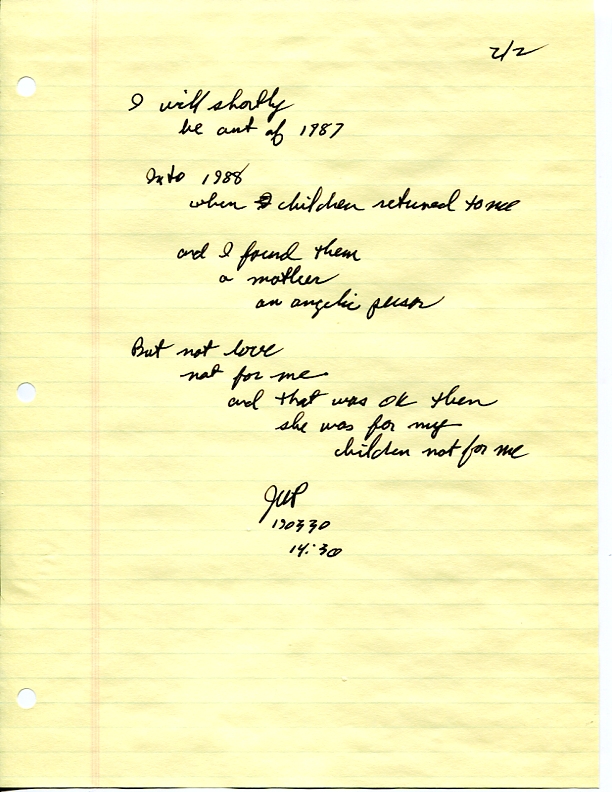 2/2
I will shortly
be out of 1987
Into 1988
when children returned to me
and I found them
a mother
an angelic person
But not love
not for me
and that was ok then
she was for my
children not for me
JWP
190330
14:30